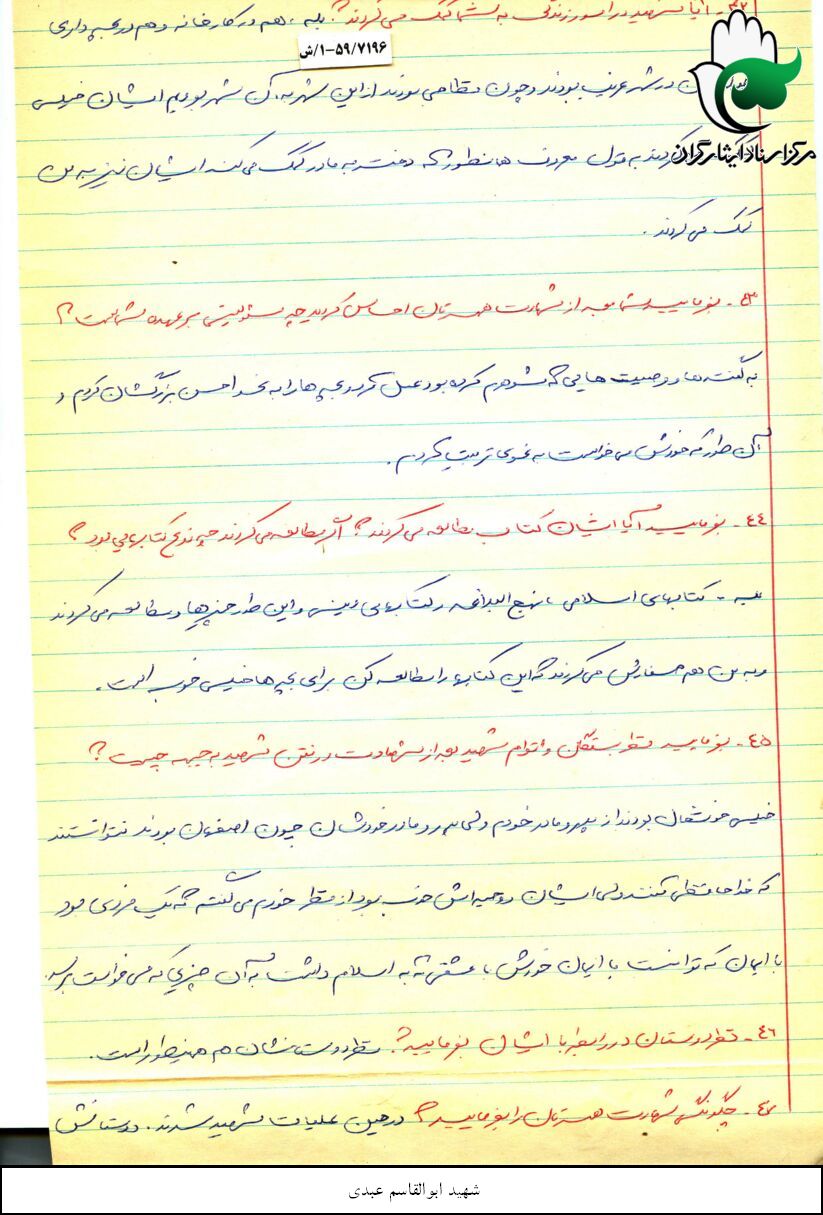 ۴۲- آیا شهید در امور زندگی به شما کمک می‌کردند؟ بله، هم در کارخانه و هم در بچه داری
۱-۵۹/۷۱۹۶/ش
در شهر غریب بودند و چون نظامی بودند از این شهر به آن شهر بودیم ایشان خیلی
مرکز اسناد ایثارگران
کردند به قول معروف همانطور که دختر به مادر کمک می‌کند ایشان نیز به من
کمک می‌کردند.
۴۳- بفرمایید شما بعد از شهادت همسرتان احساس کردید چه مسئولیتی بر عهده شماست؟
به گفته‌ها و وصیت هایی که شوهرم کرده بود عمل کردم و بچه ها را به نحو احسن بزرگشان کردم و
آن طور که خودش می‌خواست به نحوی تربیت کردم.
۴۴- بفرمایید آیا ایشان کتاب مطالعه می‌کردند؟ اگر مطالعه می‌کردند چه نوع کتابهایی بود؟
بله - کتابهای اسلامی، نهج البلاغه و کتابهای دینی و این طور چیزها و مطالعه می‌کردند
و به من هم سفارش می‌کردند که این کتابها را مطالعه کن برای بچه ها خیلی خوب است.
۴۵- بفرمایید نظر بستگان و اقوام شهید بعد از شهادت و رفتن شهید به جبهه چیست؟
خیلی خوشحال بودند از پدر و مادر خودم ولی پدر و مادر خودشان چون اصفهان بودند نتوانستند
که خداحافظی کنند ولی ایشان روحیه‌اش خوب بود از نظر خودم می‌گفتم که یک فردی بود
با ایمان که توانست با ایمان خودش با عشقی که به اسلام داشت به آن چیزی که می خواست برسد.
۴۶- نظر دوستان در رابطه با ایشان بفرمایید؟ نظر دوستانشان هم همینطور است.
۴۷- چگونگی شهادت همسرتان را بفرمایید؟ در حین عملیات شهید شدند. دوستانش
شهید ابوالقاسم عبدی